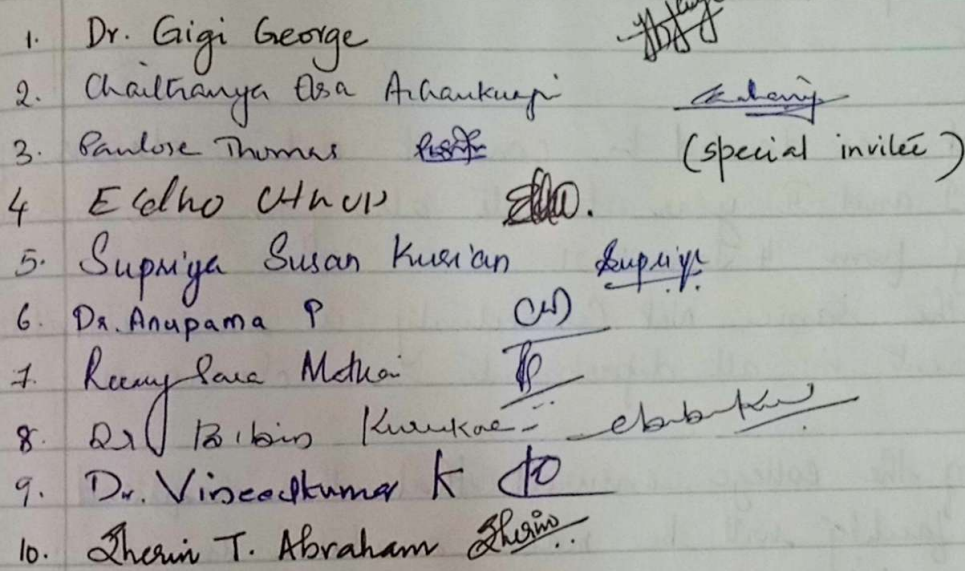 1. Dr. Gigi George
2. Chaithanya Elsa Achankunju
3. Paulose Thomas (special invitee)
4 Eldho
5. Supriya Susan Kurian Supriya
6. Dr. Anupama P
7. Reeny Sara Mathai
8. Dr Bibin Kuriakose
9. Dr. Vinodkumar K
10. Zherin T. Abraham Zherin